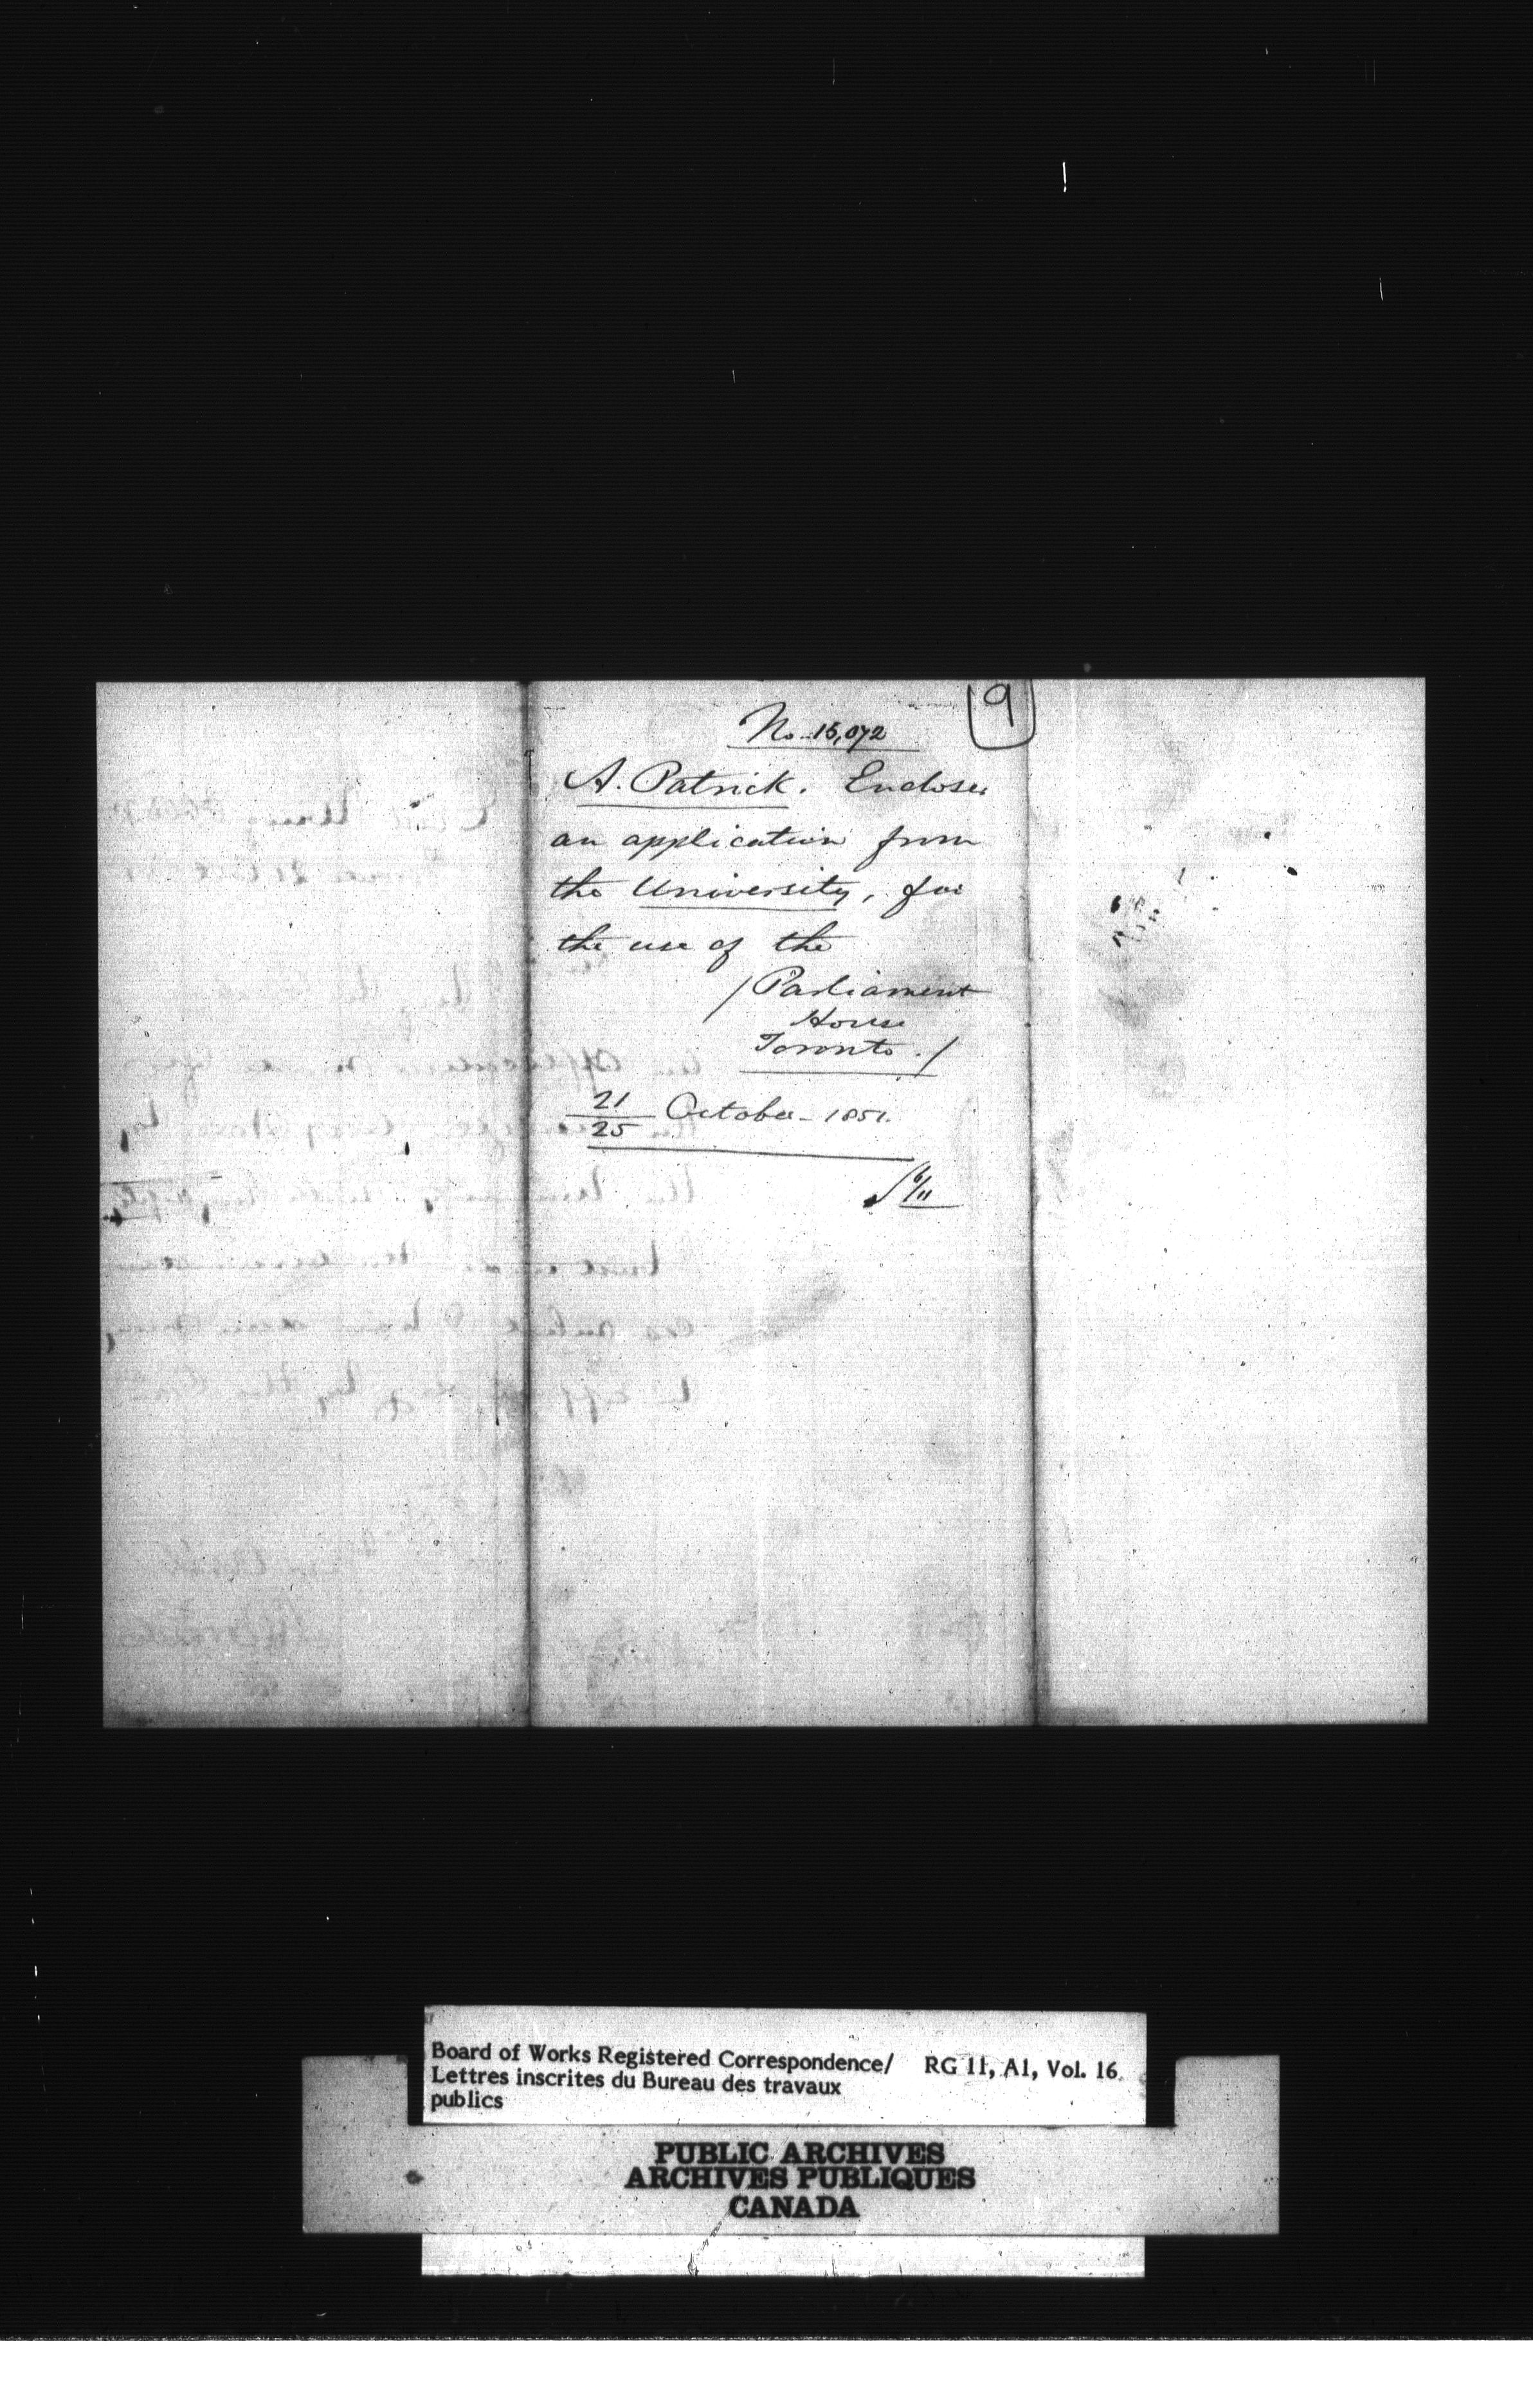 9
No. 15,072
A. Patrick. Encloses
an application from
the University, for
the use of the
/Parliament
House
Toronto./
21
25 October - 1851.
6/11
Board of Works Registered Correspondence/ RG 11, A1, Vol. 16
Lettres inscrites du Bureau des travaux
publics
PUBLIC ARCHIVES
ARCHIVES PUBLIQUES
CANADA